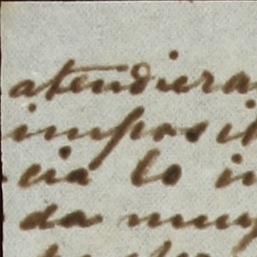 atendiera
imposi
cia lo i
da muy